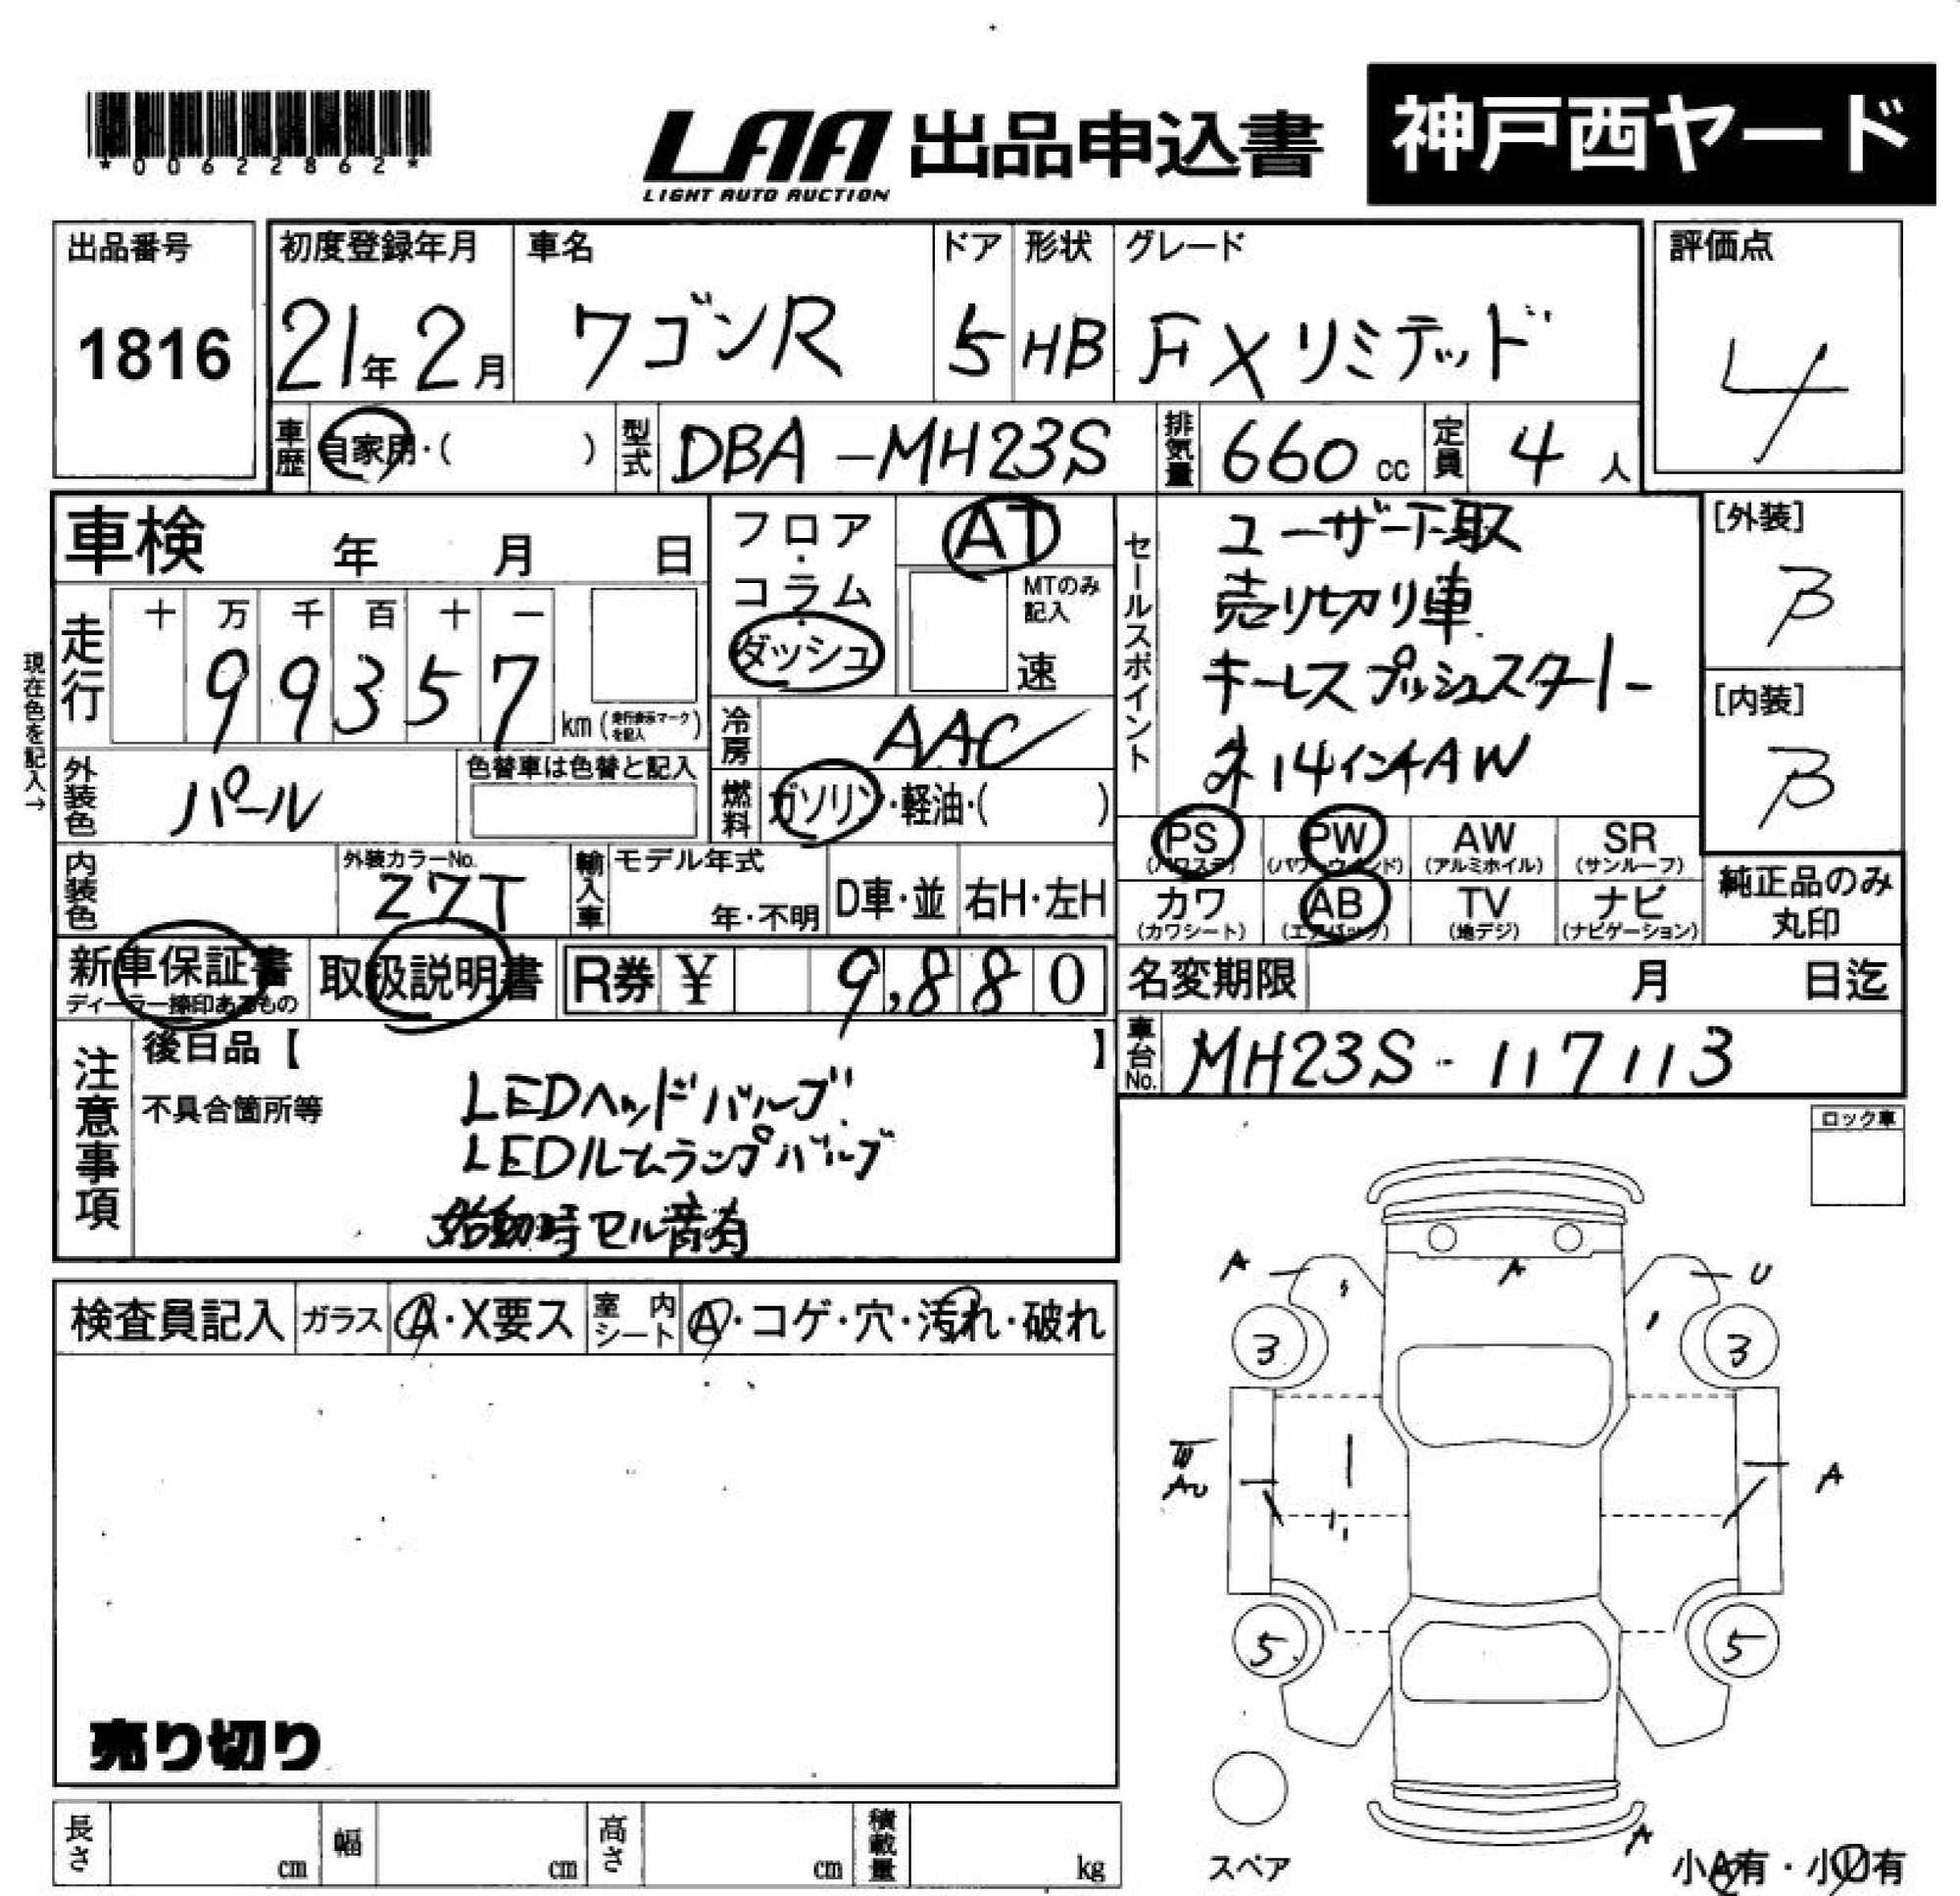 *00622862*
LAA 出品申込書 神戸西ヤード
LIGHT AUTO AUCTION
出品番号 初度登録年月 車名 ドア 形状 グレード 評価点
1816 21年 2月 ワゴンR 5 HB FXリミテッド 4
車歴 自家用・( ) 型式 DBA-MH23S 排気量 660cc 定員 4人
車検 年 月 日
フロア・コラム・ダッシュ AT
MTのみ記入 速
現在色を記入→
走行 十 万 千 百 十 一
99357 km (走行表示マークを記入)
冷房 AAC
外装色 パール 色替車は色替と記入
燃料 ガソリン・軽油・( )
セールスポイント
ユーザー下取
売り切り車
キーレスプッシュスタート
14インチAW
[外装]
B
[内装]
B
PS (パワステ) PW (パワーウインド) AW (アルミホイル) SR (サンルーフ)
カワ (カワシート) AB (エアバッグ) TV (地デジ) ナビ (ナビゲーション)
純正品のみ丸印
内装色 外装カラーNo. Z7T 輸入車 モデル年式 年・不明 D車・並 右H・左H
新車保証書 ディーラー捺印あるもの 取扱説明書 R券 ¥ 9,880
名変期限 月 日迄
車台No. MH23S-117113
注意事項 後日品【 】
不具合箇所等
LEDヘッドバルブ
LEDルームランプバルブ
始動時セル音有
ロック車
検査員記入 ガラス A・X要ス 室内シート A・コゲ・穴・汚れ・破れ
A A U
3 3
W
AU A
5 5
A
売り切り
スペア 小A有・小U有
長さ cm 幅 cm 高さ cm 積載量 kg